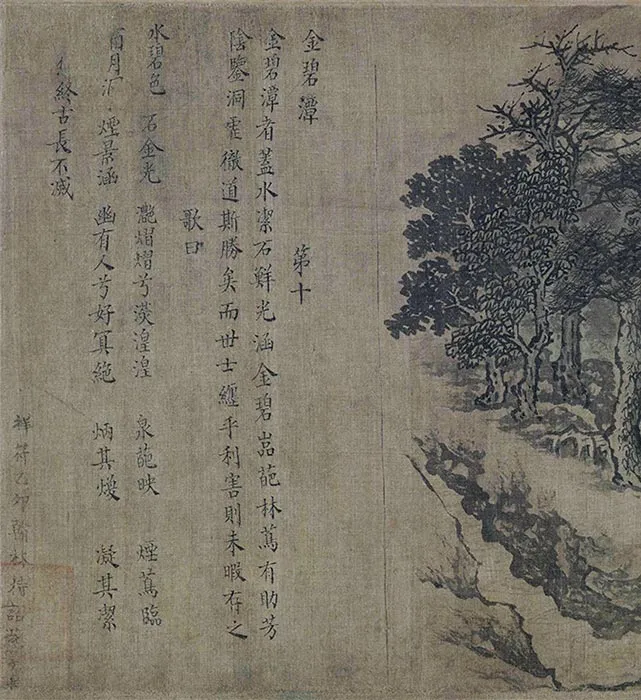 金碧潭　第十
金碧潭者蓋水潔石鮮光涵金碧嵓葩林蔦有助芳
陰鑒洞徹道斯勝矣而世士纏乎利害則未暇存之
歌曰
水碧色　石金光　灧熠熠兮湟湟　泉葩映　煙蔦臨
月　煙景涵　幽有人兮好冥絶　炳其煥　凝其潔
終古長不滅
祥符乙卯翰林待詔燕